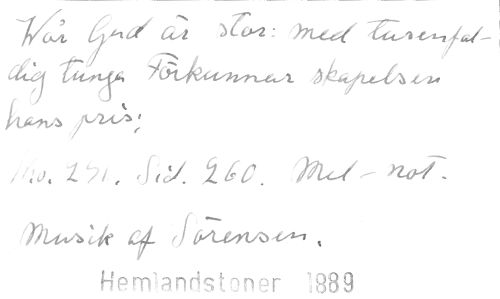 Vår Gud är stor: med tusenfal-
dig tunga Förkunnar skapelsen
hans pris;
No. 251. Sid. 260. Mel-not.
Musik af Sörensen.
Hemlandstoner 1889